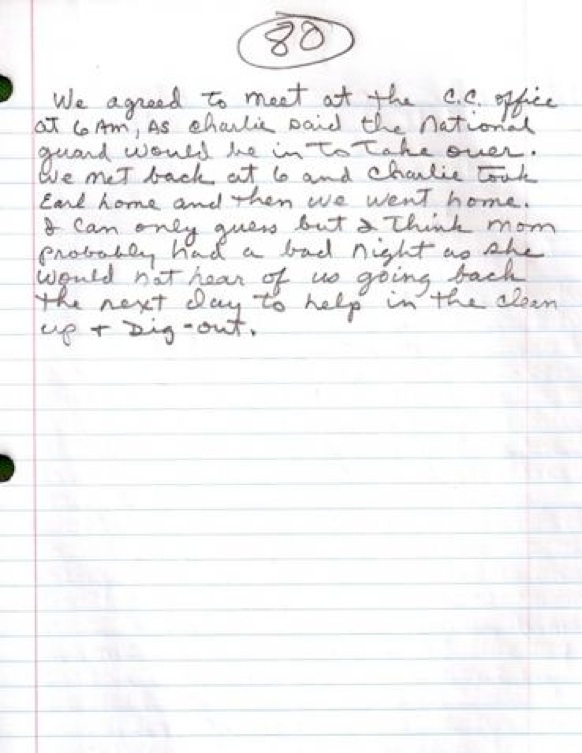 80
We agreed to meet at the C.C. office
at 6 Am, As charlie said the National
guard would be in to take over.
We met back at 6 and Charlie took
Earl home and then we went home.
I can only guess but I think mom
probably had a bad night as she
would not hear of us going back
the next day to help in the clean
up + Dig-out.